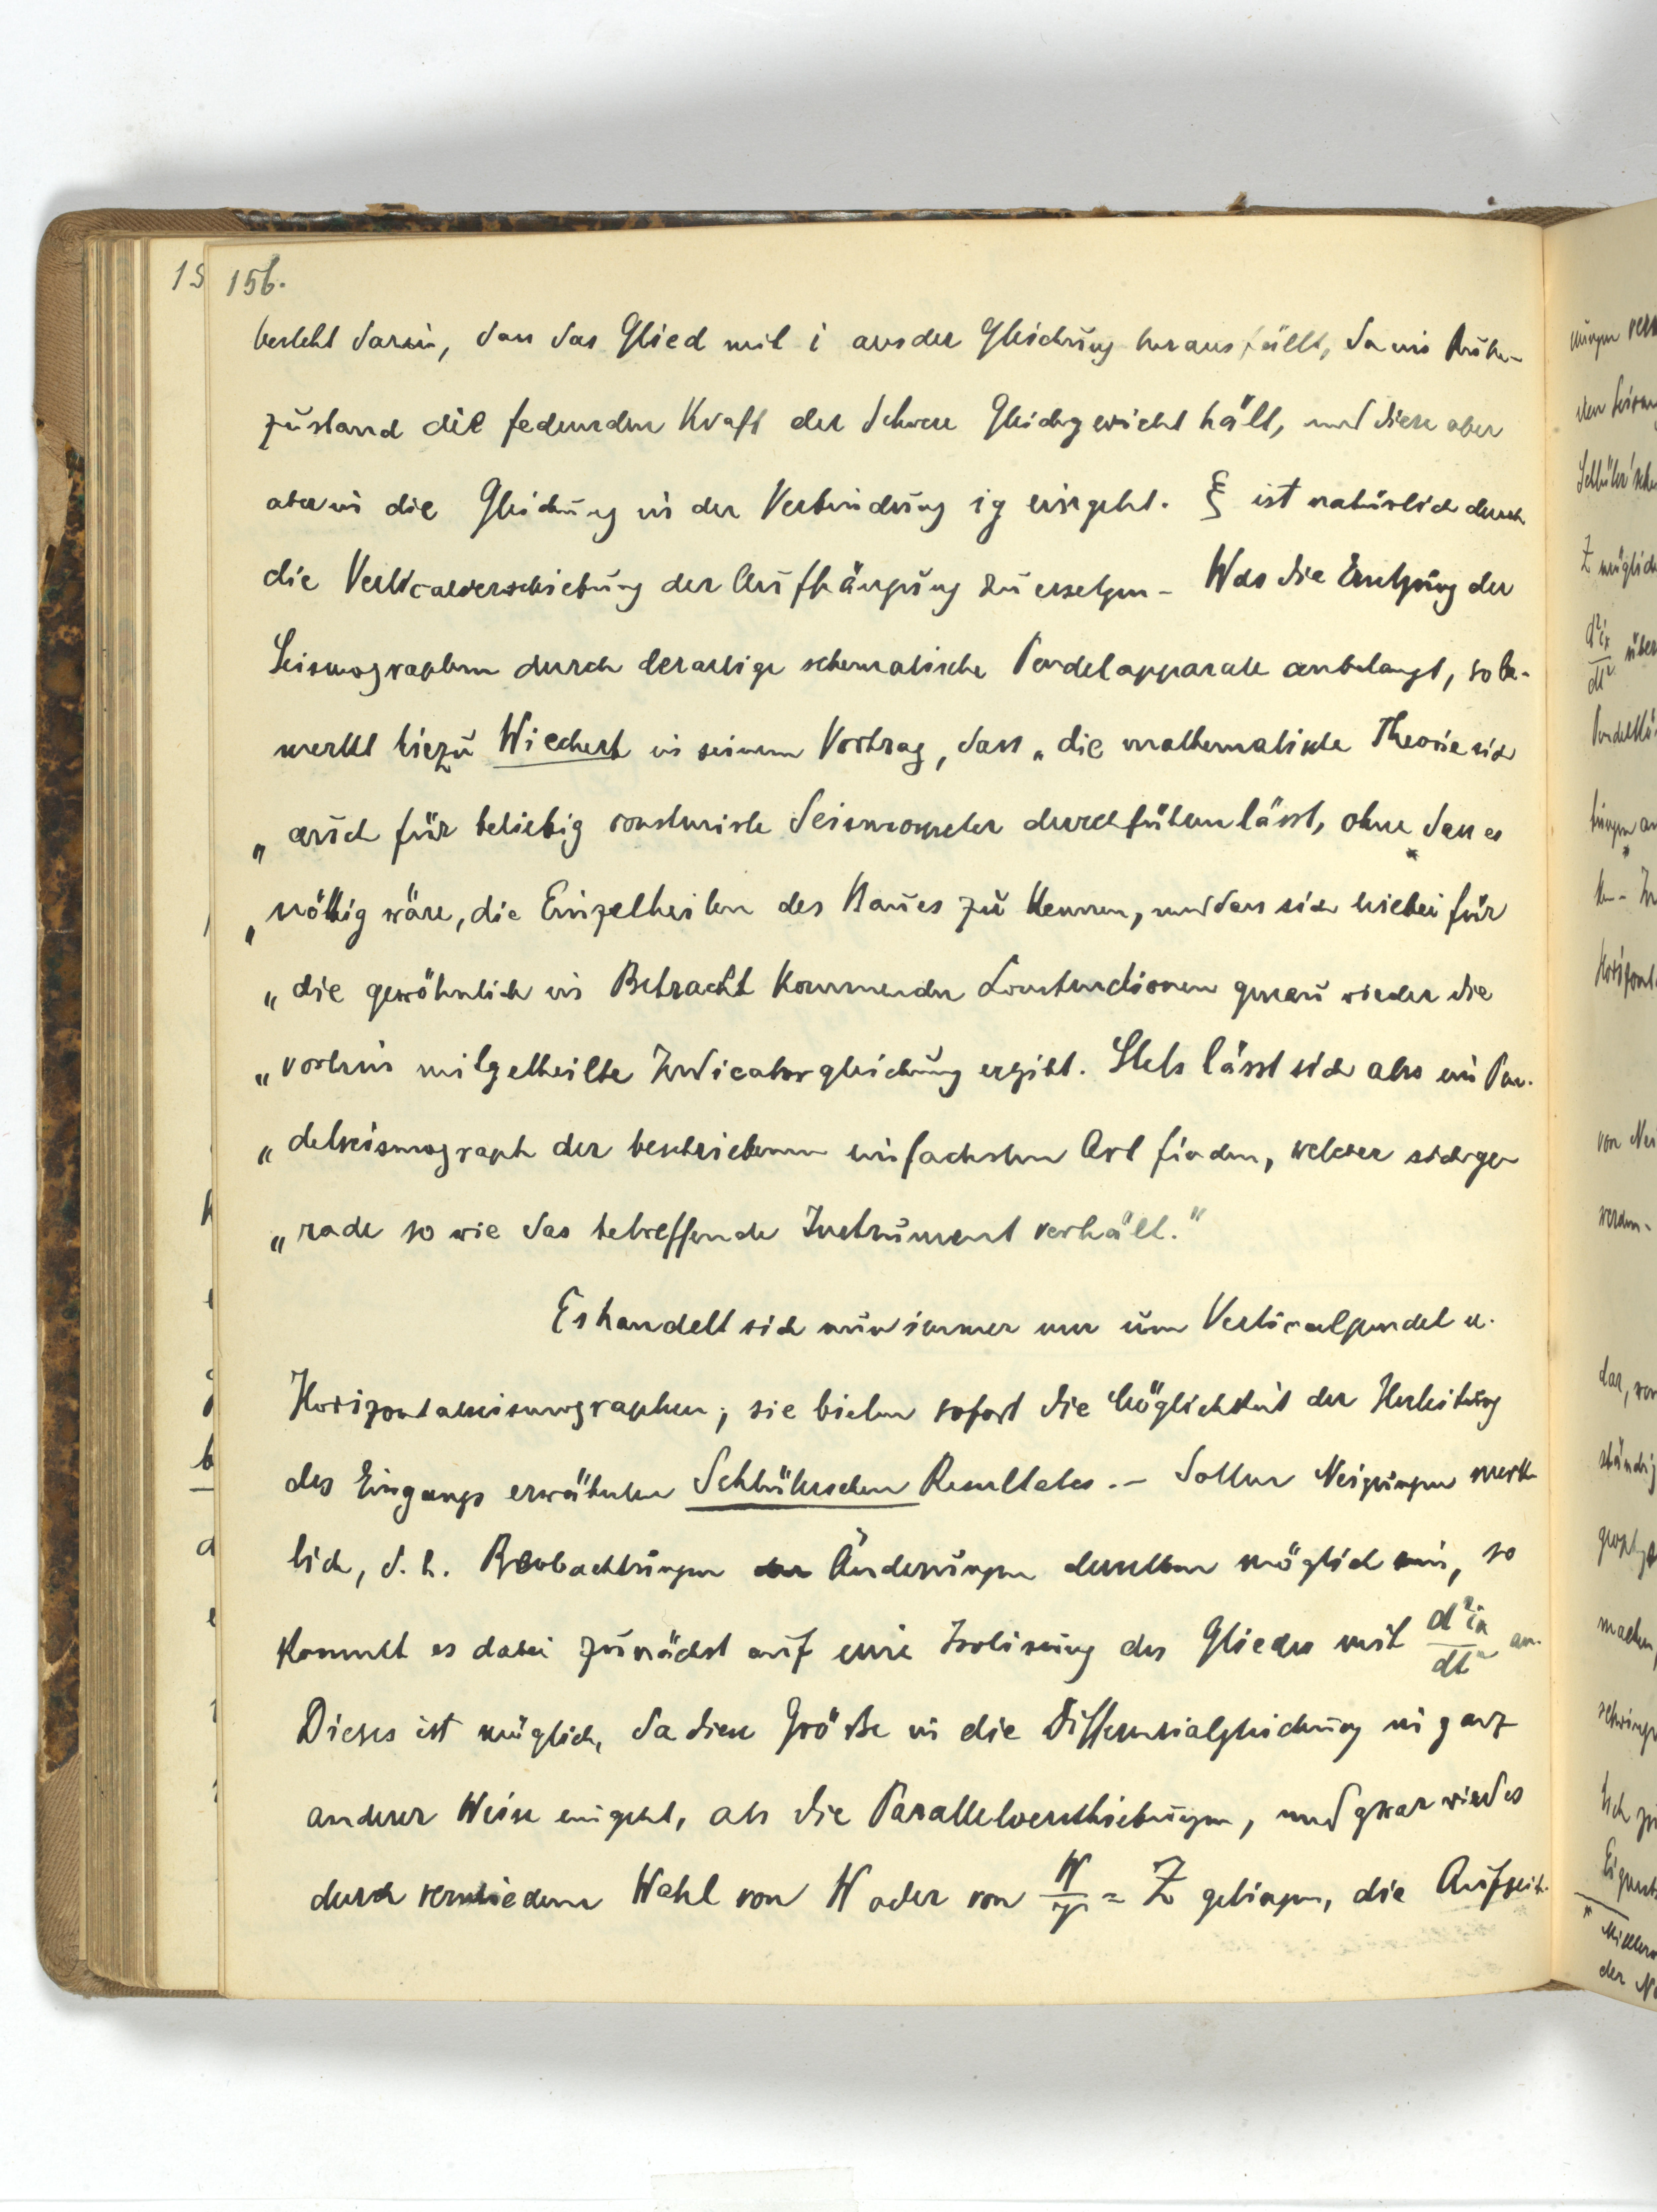 156.
besteht darin, dass das Glied mit i aus der Gleichung herausfällt, da im Ruhe-
zustand die federnden Kraft der Schwere Gleichgewicht hält, und diese aber
aber in die Gleichung in der Verbindung ig eingeht. ξ ist natürlich durch
die Verticalverschiebung der Aufhängung zu ersetzen – Was die Ersetzung der
Seismographen durch derartige schematische Pendelapparate anbelangt, so be-
merkt hiezu Wiechert in seinem Vortrag, dass „die mathematische Theorie sich
„auch für beliebig construirte Seismometer durchführen lässt, ohne dass es
„nöthig wäre, die Einzelheiten des Baues zu kennen, und dass sich hiebei für
„die gewöhnlich in Betracht kommenden Constructionen genau wieder die
„vorhin mitgetheilte Indicatorgleichung ergibt. Stets lässt sich also ein Pen-
„delseismograph der beschriebenen einfachsten Art finden, welcher sich ge-
„rade so wie das betreffende Instrument verhält."
Es handelt sich nun immer nur um Verticalpendel u.
Horizontalseismographen; sie bieten sofort die Möglichkeit der Herleitung
des Eingangs erwähnten Schlüterschen Resultates. – Sollen Neigungen merk-
lich, d. h. Beobachtungen der Änderungen derselben möglich sein, so
kommt es dabei zunächst auf eine Isolirung des Gliedes mit d²iₓ/dt² an.
Dieses ist möglich, da diese Größe in die Differentialgleichung in ganz
anderer Weise eingeht, als die Parallelverschiebungen, und zwar wird es
durch verschiedene Wahl von W oder von = Z gelingen, die Aufzeich-